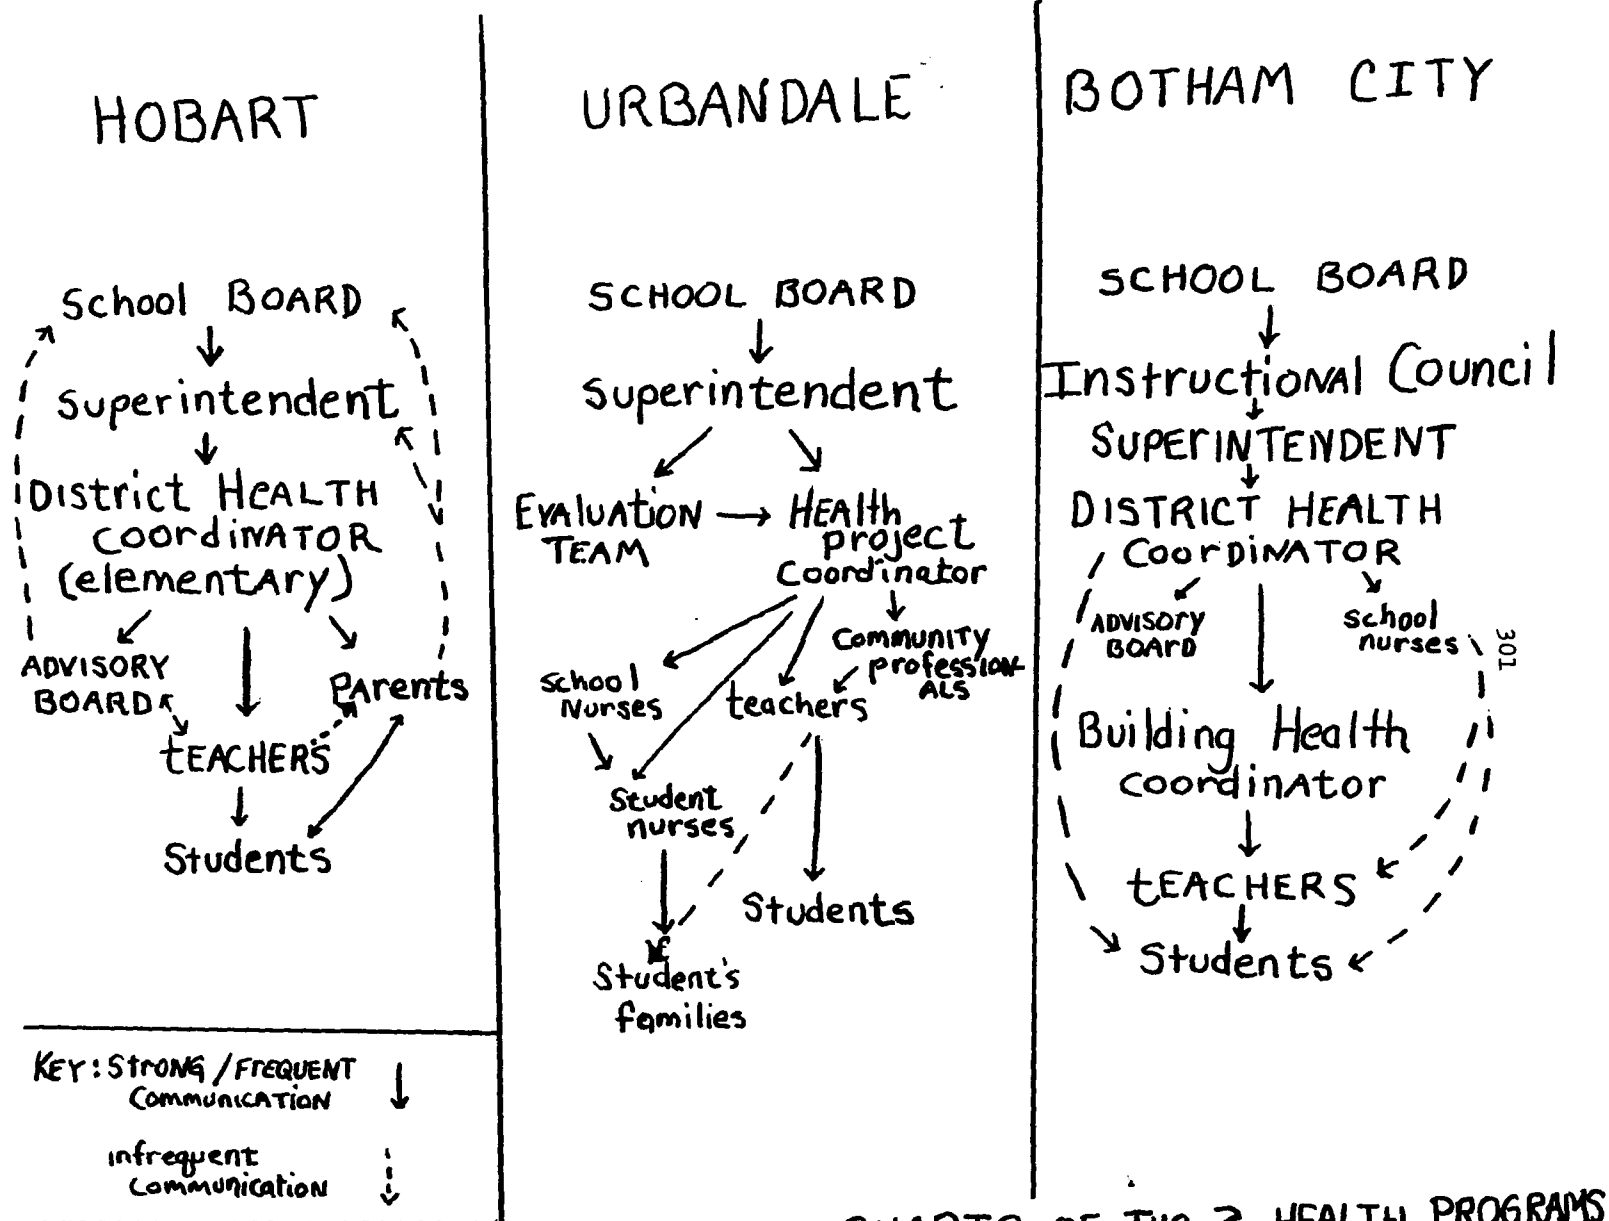 HOBART
School BOARD
Superintendent
District HEALTH
coordinATOR
(elementary)
ADVISORY
BOARD
Parents
tEACHERS
Students
KEY: STRONG / FREQUENT
COMMUNICATION
infrequent
communication
URBANDALE
SCHOOL BOARD
Superintendent
EVALUATION
TEAM
HEAlth
project
Coordinator
COMMUNITY
professION-
ALS
school
Nurses
teachers
Student
nurses
Students
Student's
families
BOTHAM CITY
SCHOOL BOARD
InstructioNAl Council
SUPERINTENDENT
DISTRICT HEALTH
COORDINATOR
ADVISORY
BOARD
school
nurses
301
Building Health
coordinAtor
tEACHERS
Students
HEALTH PROGRAMS